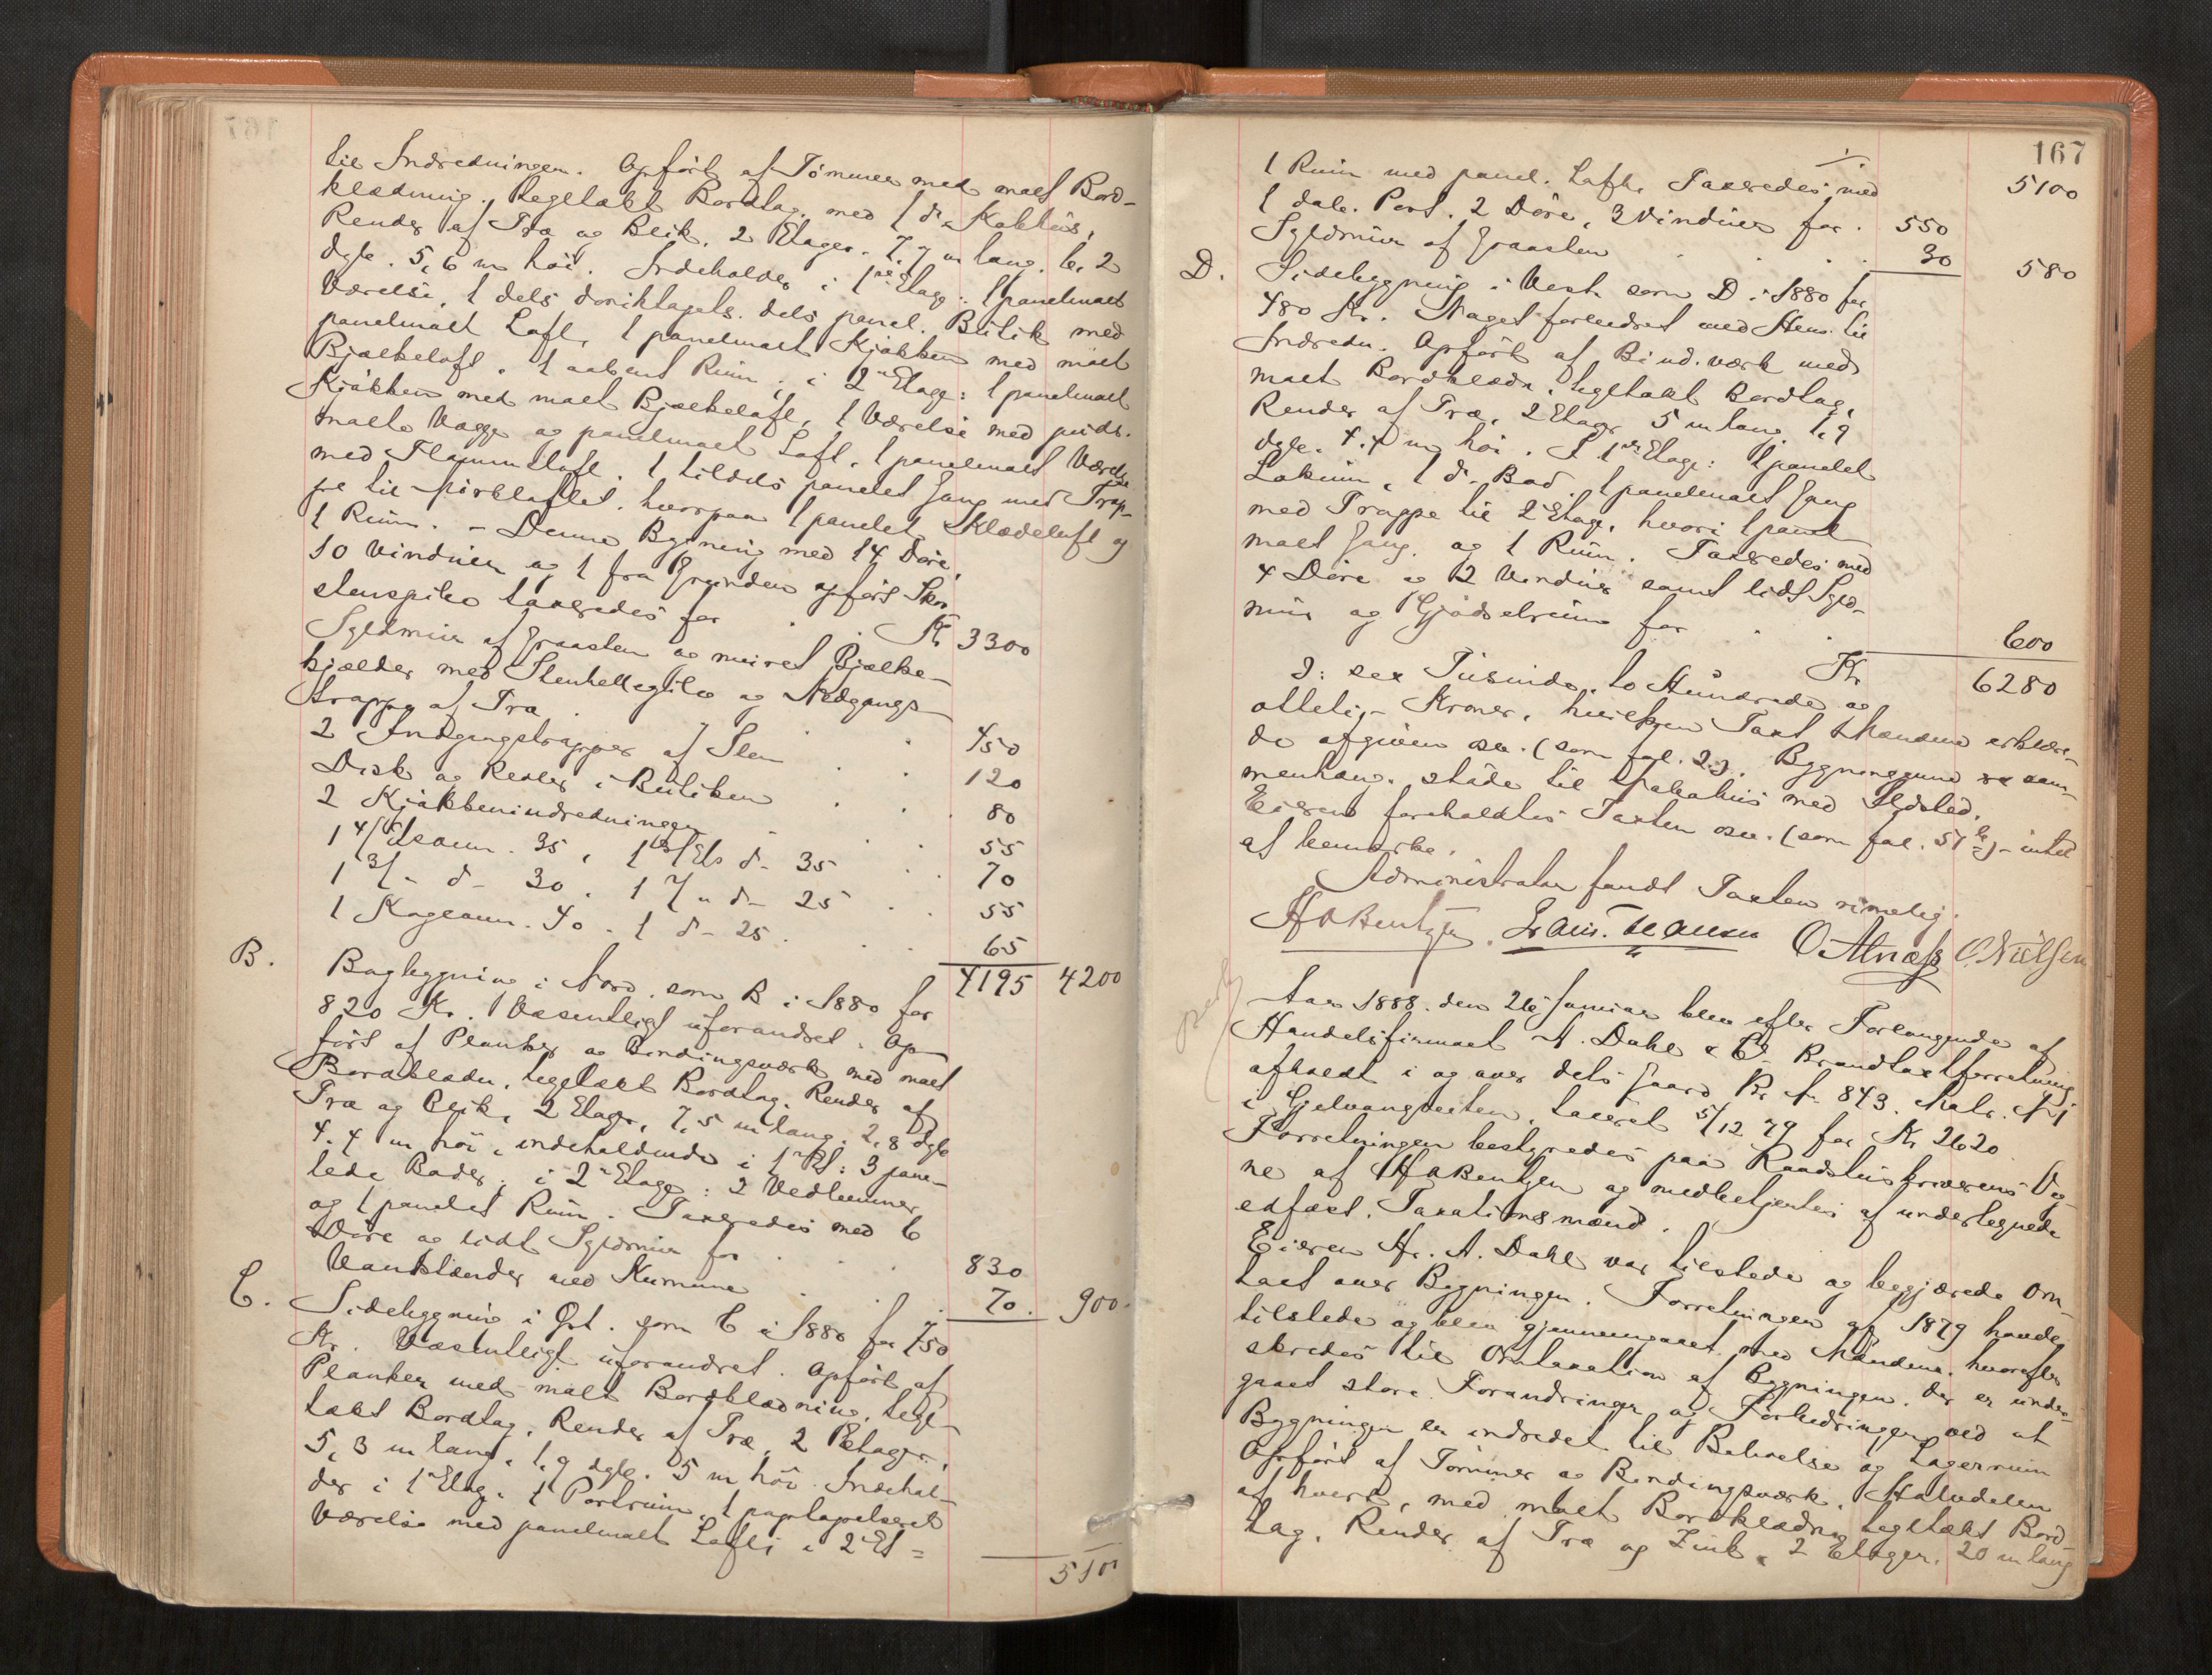 til Indredningen. Opført af Tømmer med malt Bord-
klædning. tegltakt Bordtag, med 1 do Kobhus,
Render af Træ og Blik, 2 Etager. 7,7 m lang, 6,2
dyb. 5,6 m høi. Indeholder i 1ste Etage: 1 panelmalt
Værelse, 1 dels  dels panel. Butik med
panelmalt Loft, 1 panelmalt Kjøkken med malt
Bjælkeloft, 1 aabent Rum; i 2n Etage: 1 panelmalt
Kjøkken med malt Bjælkeloft, 1 Værelse med puds.
malte Vægge og panelmalt Loft, 1 panelmalt Værelse
med Flammeloft. 1 tildels panelet Gang med Trap-
pe til Mørkloftet, hvorpaa 1 panelet Klædeloft og
1 Rum. - Denne Bygning med 14 Døre,
10 Vinduer og 1 fra Grunden opført Skor-
stenspibe taxeredes for . . Kr 3300
Syldmur af Graasten og muret Bjælke-
kjælder med Stenhellegulv og Nedgangs-
trappe af Træ . . . 450
2 Indgangstrapper af Sten . . 120
Disk og Reoler i Butiken . . 80
2 Kjøkkenindredninger . . 55
1 4/Etsovn. 35, 1 3/Ets do 35 . . 70
1 3/" do 30. 1 2/" do 25 . . 55
1 Kogeovn. 40. 1 do 25 . . 65
4195 4200
B. Bagbygning i Nord, som B i 1880 for
820 Kr. Væsentligt uforandret. Op-
ført af Planker og Bindingsværk med malt
Bordklædn. tegltakt Bordtag. Render af
Træ og Blik, 2 Etager, 7,5 m lang. 2,8 dyb
4.4 m høi, indeholdende i 1e Et: 3 pane-
lede Boder; i 2n Etage: 2 Vedlemmer
og 1 panelet Rum. Taxeredes med 6
Døre og lidt Syldmur for . . . 830
Vandstænder med Kumme . . . 70. 900.
C. Sidebygning i Øst. som C i 1880 for 750
Kr. Væsentligt uforandret. Opført af
Planker med malt Bordklædning, tegl-
takt Bordtag, Render af Træ, 2 Etager.
5,3 m lang, 1,9 dyb. 5 m høi. Indehol-
der i 1e Etag. 1 Portrum, 1 paptapetseret
Værelse med panelmalt Loft; i 2n Et =
5100
167
1 Rum med panel. Loft. Taxeredes med 5100
1 dob. Port. 2 Døre, 3 Vinduer for . 550
Syldmur af Graasten . . . 30 580
D. Sidebygning i Vest som D i 1880 for
480 Kr. Noget forbedret med Hens. til
Indredn. Opført af Bind.værk med
malt Bordklædn. tegltakt Bordtag,
Render af Træ, 2 Etager 5 m lang 1,9
dyb. 4,4 m høi. I 1ste Etage: 1 panelet
Lokum, 1 do Bod. 1 panelmalt Gang
med Trappe til 2 Etage, hvori 1 panel
malt Gang. og 1 Rum. Taxeredes med
4 Døre og 2 Vinduer samt lidt Syld-
mur og Gjødselrum for . . . 600
Kr 6280
ɔ: sex Tusinde, to Hundrede og
otteti, - Kroner, hvilken Taxt Mændene erklære-
de afgiven osv. (som fol. 2.). Bygningerne sam-
menhæng. støde til Pakhus med Ildsted.
Eieren foreholdtes Taxten osv. (som fol. 51 b) - intet
at bemærke.
Administrator fandt Taxten rimelig.
HABentzen. O. Alnæss O. Nielsen
Aar 1888. den 26 Januar blev efter Forlangende af
Handelsfirmaet A. Dahl & Co Brandtaxtforretning
afholdt i og over dets Gaard Br. N. 843. Matr. N 1
i Gjelvangveiten, taxeret 5/12 79 for Kr. 2620
Forretningen bestyredes paa Raadstuskriverens Veg-
ne af HABentzen og medbetjentes af undertegnede
edfæst. Taxationsmænd.
Eieren Hr. A. Dahl var tilstede og begjærede Om-
taxt over Bygningen. Forretningen af 1879 havdes
tilstede og blev gjennemgaaet med Mændene, hvorefter
skredes til Omtaxation af Bygningen. Der er under-
gaaet store Forandringer og Forbedringer ved at
Bygningen er indredet til Beboelse og Lagerrum
Opført af Tømmer og Bindingsværk, Halvdelen
af hvert, med malt Bordklædning tegltakt Bord-
tag, Render af Træ og Zink, 2 Etager. 20 m lang